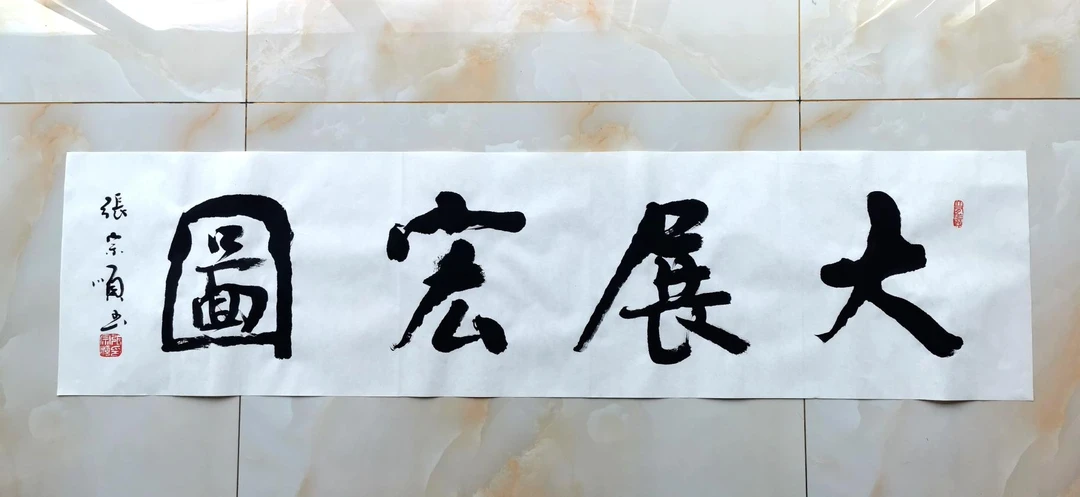 大展宏圖
張宗順书